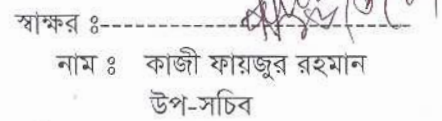 স্বাক্ষর ঃ-------------------------------
নাম ঃ কাজী ফায়জুর রহমান
উপ-সচিব